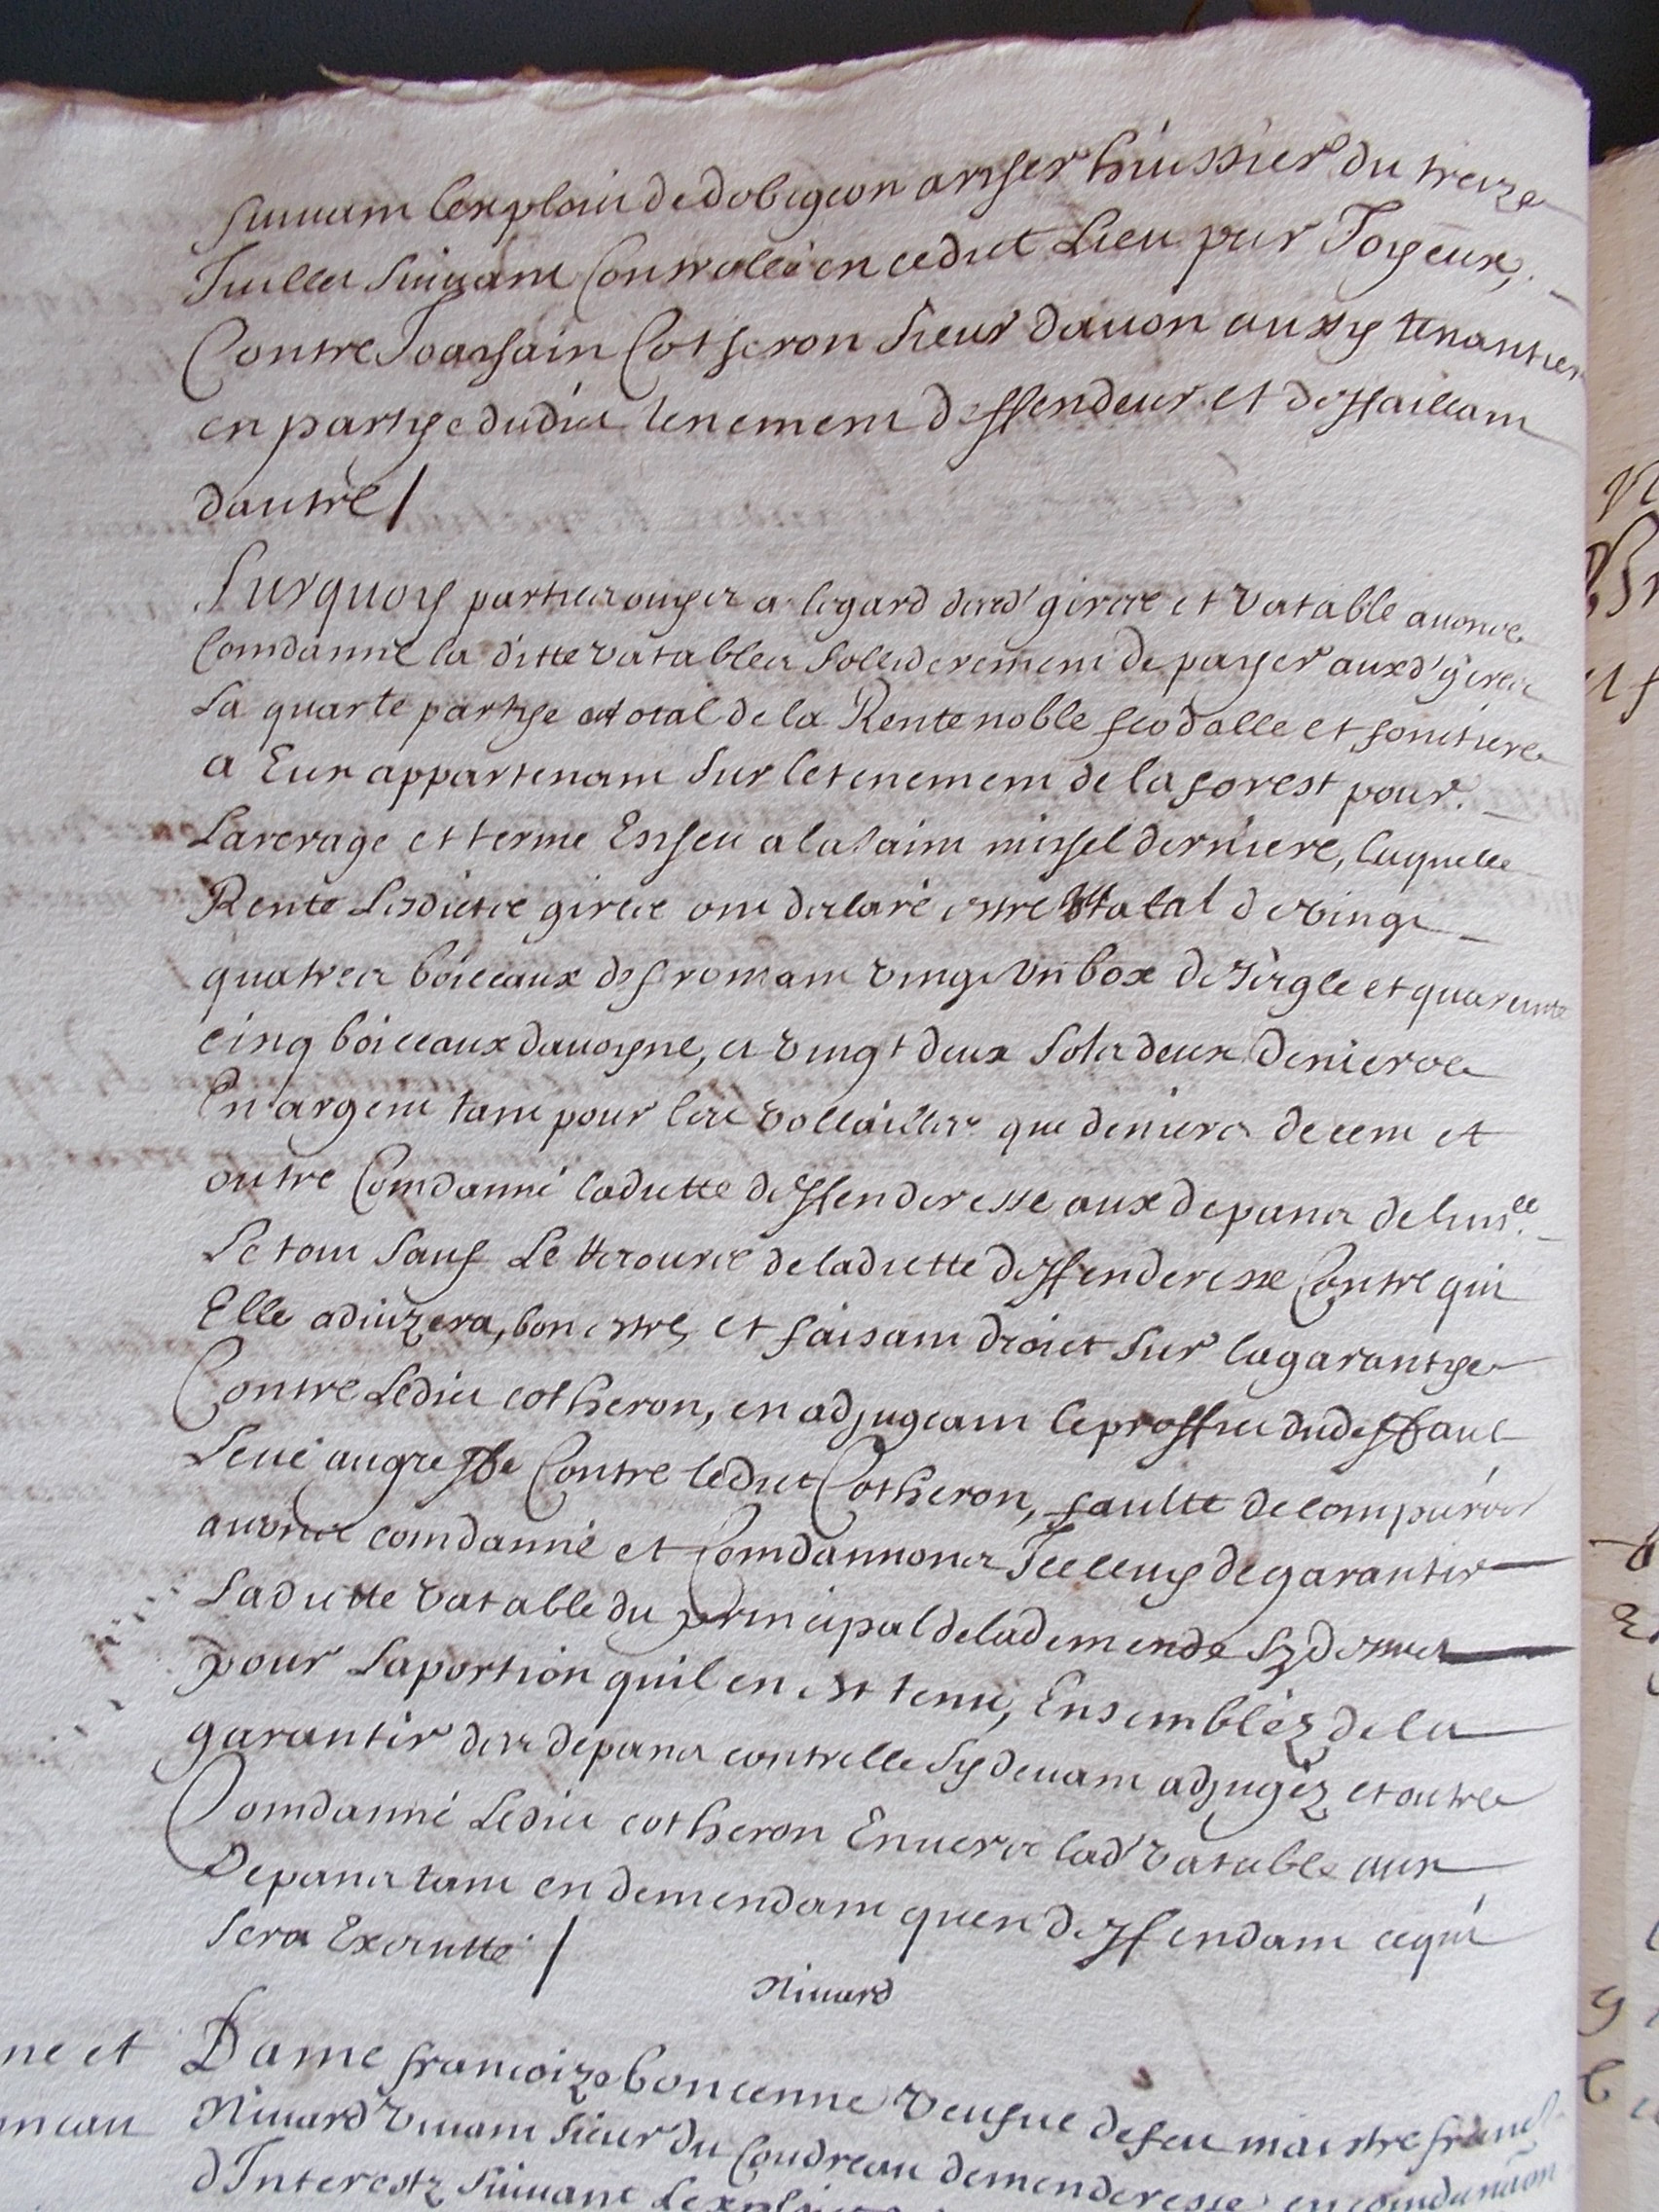 suivant l'exploict de dobigeon archer huissier du treize
Juillet suivant Controllé en cedict Lieu par Joyeux,
Contre Toussain Cotheron sieur davon aussy tenantier
en partye dudict tenement deffendeur et deffaillant
dautre /
Surquoy parties ouyes a legard desd' girces et vatable avons
Comdanné la ditte vatable solliderement de payer auxd' girces
La quarte partye au total de la Rente noble feodalle et foncière
a Eux appartenant sur le tenement de la forest pour
Larerage et terme Escheu a la saint michel derniere, laquelle
Rente Lesdicts girces ont declaré estre au total de vingt
quatres boiceaux de fromant vingt un box de seigle et quarente
cinq boiceaux davoyne, et vingt deux sols deux deniers
En argent tant pour les vollailles que deniers de cent et
outre Comdanné ladicte deffenderesse aux depans de linsce.
Le tout sauf Le recours de ladictte deffenderesse Contre qui
Elle advizera, bon estre, et faisant droict sur la garantye
Contre Ledict cotheron, en adjugeant le proffict du deffaut
Levé au greffe Contre ledict Cotheron, faulte de comparoir
avons comdanné et Comdannons Icelluy de garantir
Ladictte vatable du principal de la demende sy dessus
pour La portion quil en est tenu, Ensemblez de la
garantir des depans contrelle sy devant adjugéz et outre
Comdanné Ledict cotheron Envers lad' vatable aux
Depans tant en demendant quen deffendant ce qui
sera Executté /
Nivard
ne et
Dame francoize boncenne veufve de feu maistre franc
ncau
Nivard vivant sieur du Coudreau demenderesse en comdannaon
d'Interestz suivant Lexploict